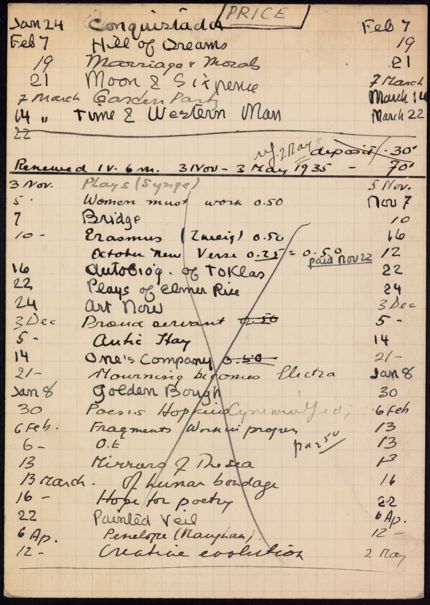 PRICE
Jan 24 Conquistador Feb 7
Feb 7 Hill of Dreams 19
19 Marriage & Morals 21
21 Moon & Sixpence 7 March
7 March Garden Party March 14
14 " Time & Western Man March 22
22
ref. 2 May deposit .30
Renewed 1 v. 6 m. 3 Nov - 3 May 1935 - 70
3 Nov. Plays (Synge) 5 Nov.
5 · Women must work 0.50 Nov 7
7 Bridge 10
10 - Erasmus (Zweig) 0.50 16
October New Verse 0.25 = 0.50 12
paid Nov 22
16 Autobiog. of Toklas 22
22 Plays of Elmer Rice 24
24 Art Now 3 Dec
3 Dec Proud servant 0.50 5 -
5 - Antic Hay 14
14 One's Company 0.50 21/-
21/- Mourning becomes Electra Jan 8
Jan 8 Golden Bough 30
30 Poems Hopkins 6 Feb
6 Feb. Fragments Work in progress 13
6 - O.E 13
13 Mirrors of The sea 13
13 March. Of human bondage 16
16 - Hope for poetry 22
22 Painted Veil 6 Ap.
6 Ap. Penelope (Maugham) 12 -
12 - Creative evolution 2 May